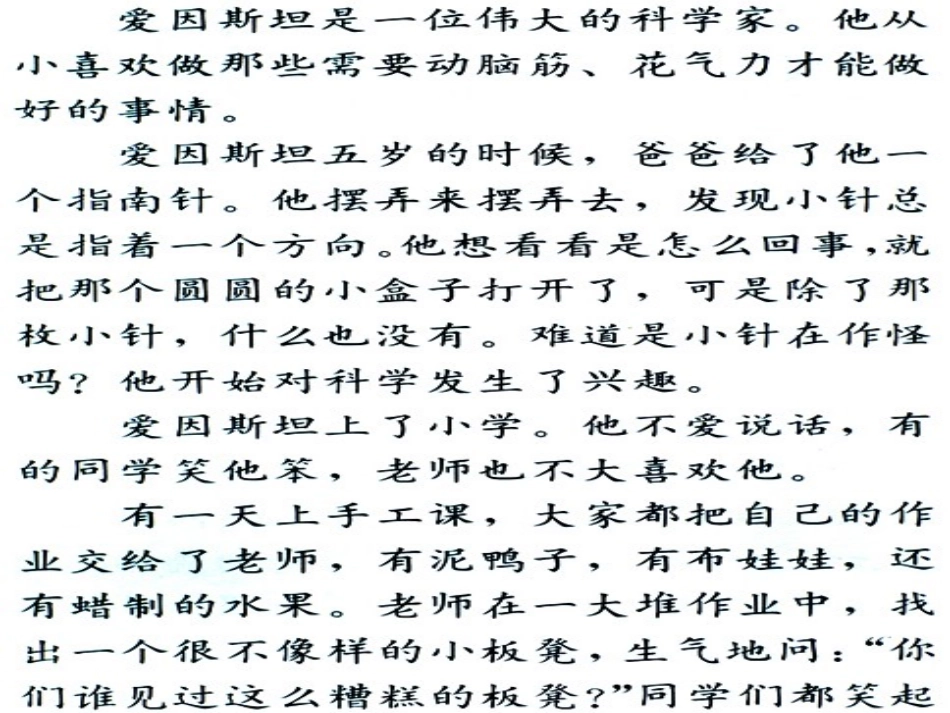 爱因斯坦是一位伟大的科学家。他从
小喜欢做那些需要动脑筋、花气力才能做
好的事情。
爱因斯坦五岁的时候，爸爸给了他一
个指南针。他摆弄来摆弄去，发现小针总
是指着一个方向。他想看看是怎么回事，就
把那个圆圆的小盒子打开了，可是除了那
枚小针，什么也没有。难道是小针在作怪
吗？他开始对科学发生了兴趣。
爱因斯坦上了小学。他不爱说话，有
的同学笑他笨，老师也不大喜欢他。
有一天上手工课，大家都把自己的作
业交给了老师，有泥鸭子，有布娃娃，还
有蜡制的水果。老师在一大堆作业中，找
出一个很不像样的小板凳，生气地问：“你
们谁见过这么糟糕的板凳？”同学们都笑起